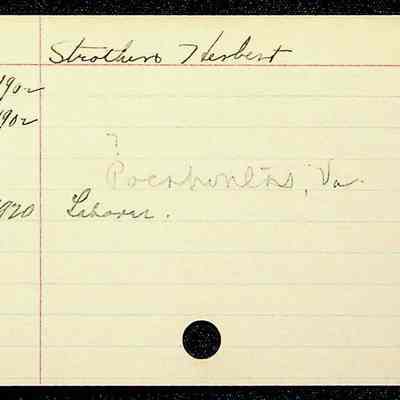 Strothers Herbert
1902
1902
?
Pocahontas, Va.
1920 Laborer.